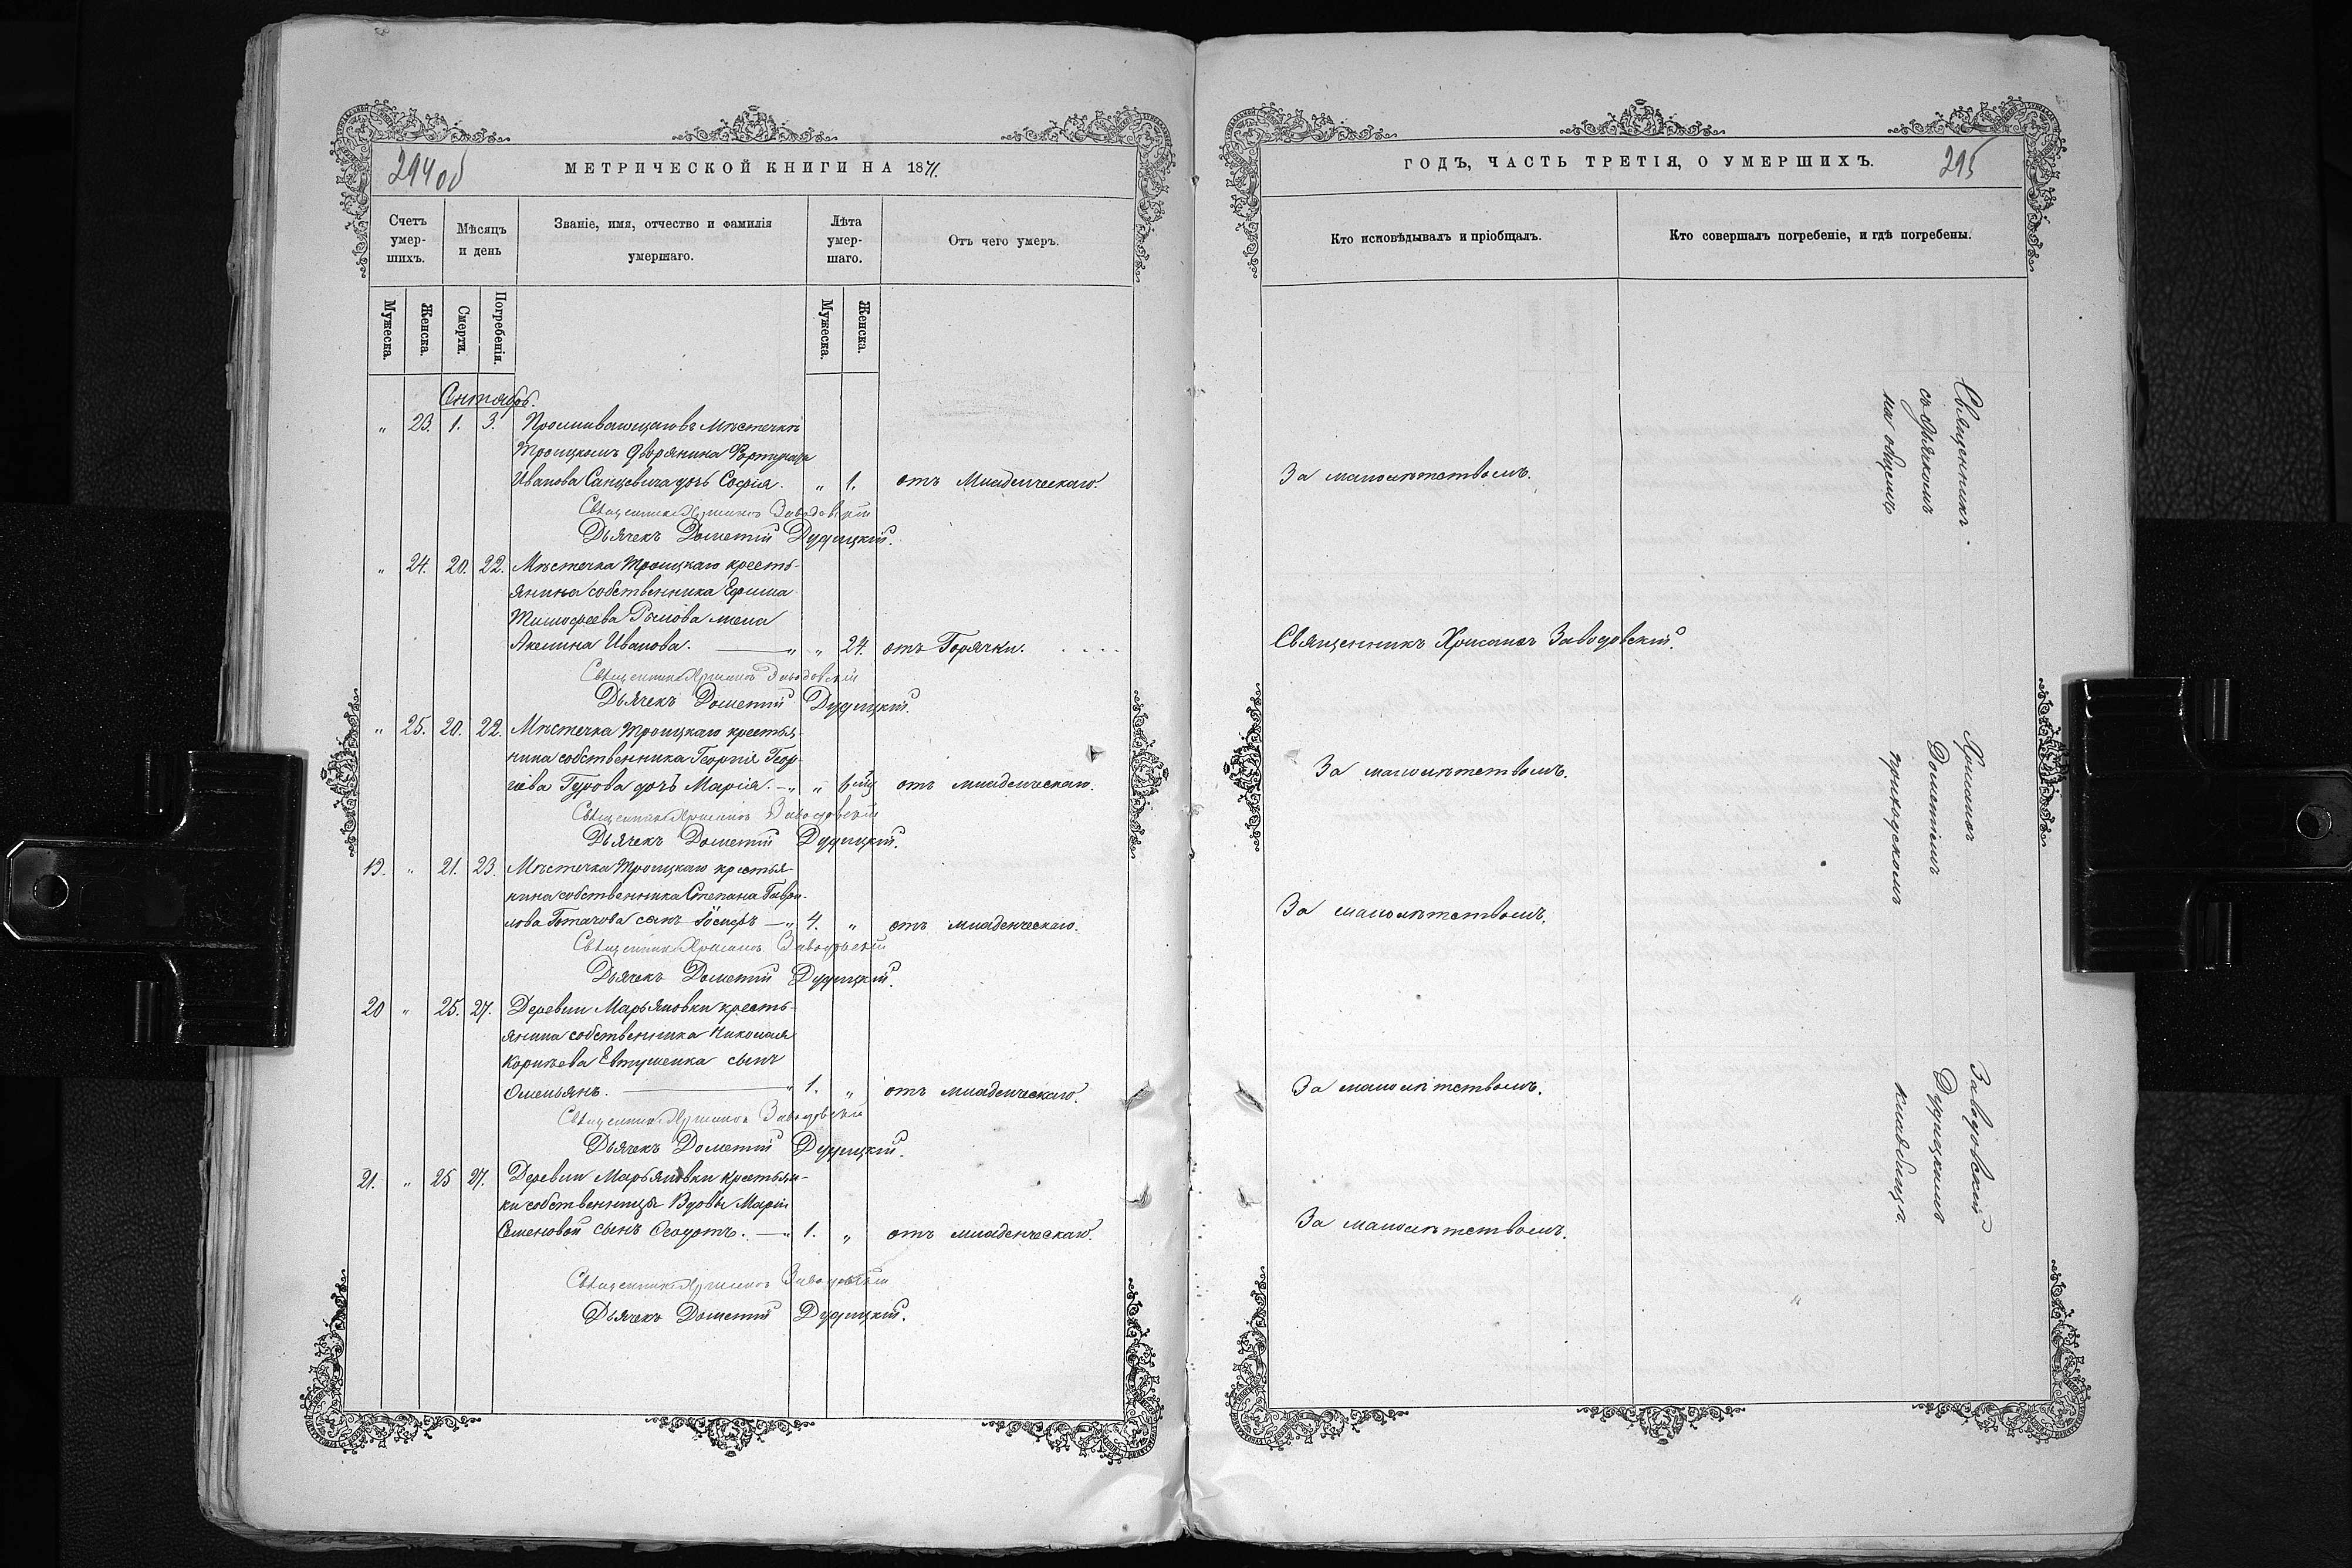 294 об
МЕТРИЧЕСКОЙ КНИГИ НА 1871.
Счетъ умер-шихъ.
Мѣсяцъ и день
Званіе, имя, отчество и фамилія умершаго.
Лѣта умер-шаго.
Отъ чего умеръ.
Мужеска.
Женска.
Смерти.
Погребенія.
Мужеска.
Женска.
Сентябрь.
„ 23. 1. 3. Проживающаго въ Мѣстечкѣ
Троицкомъ Дворянина Фортуната
Иванова Санцевича дочь Софія. „ 1. отъ Младенческаго.
Священникъ Хрисанѳъ Заводовскій
Дьячекъ Дометій Дудицкій.
„ 24. 20. 22. Мѣстечка Троицкаго кресть-
янина собственника Ефима
Тимофеева Рылова жена
Акелина Иванова. — „ „ 24. отъ Горячки.
Священникъ Хрисанѳъ Заводовскій
Дьячекъ Дометій Дудицкій.
„ 25. 20. 22. Мѣстечка Троицкаго крестья-
нина собственника Георгія Геор-
гіева Гурова дочь Марія. — „ „ 6 мц отъ младенческаго.
Священникъ Хрисанѳъ Заводовскій
Дьячекъ Дометій Дудицкій.
19. „ 21. 23. Мѣстечка Троицкаго крестья-
нина собственника Степана Гаври-
лова сынъ Іосифъ — „ 4. „ отъ младенческаго.
Священникъ Хрисанѳъ Заводовскій
Дьячекъ Дометій Дудицкій.
20 „ 25. 27. Деревни Марьяновки кресть-
янина собственника Николая
Корнѣева Евтушенка сынъ
Омельянъ. — „ 1. „ отъ младенческаго.
Священникъ Хрисанѳъ Заводовскій
Дьячекъ Дометій Дудицкій.
21. „ 25 27. Деревни Марьяновки крестьян-
ки собственницы Вдовы Маріи
Семеновой сынъ Ѳеодотъ. — „ 1. „ отъ младенческаго.
Священникъ Хрисанѳъ Заводовскій
Дьячекъ Дометій Дудицкій.
ГОДЪ, ЧАСТЬ ТРЕТІЯ, О УМЕРШИХЪ.
295
Кто исповѣдывалъ и пріобщалъ.
Кто совершалъ погребеніе, и гдѣ погребены.
За малолѣтствомъ.
Священникъ Хрисанѳъ Заводовскій.
За малолѣтствомъ.
За малолѣтствомъ.
За малолѣтствомъ.
За малолѣтствомъ.
Священникъ Хрисанѳъ Заводовскій
съ дьячкомъ Дометіемъ Дудицкимъ
на общемъ приходскомъ кладбищѣ.